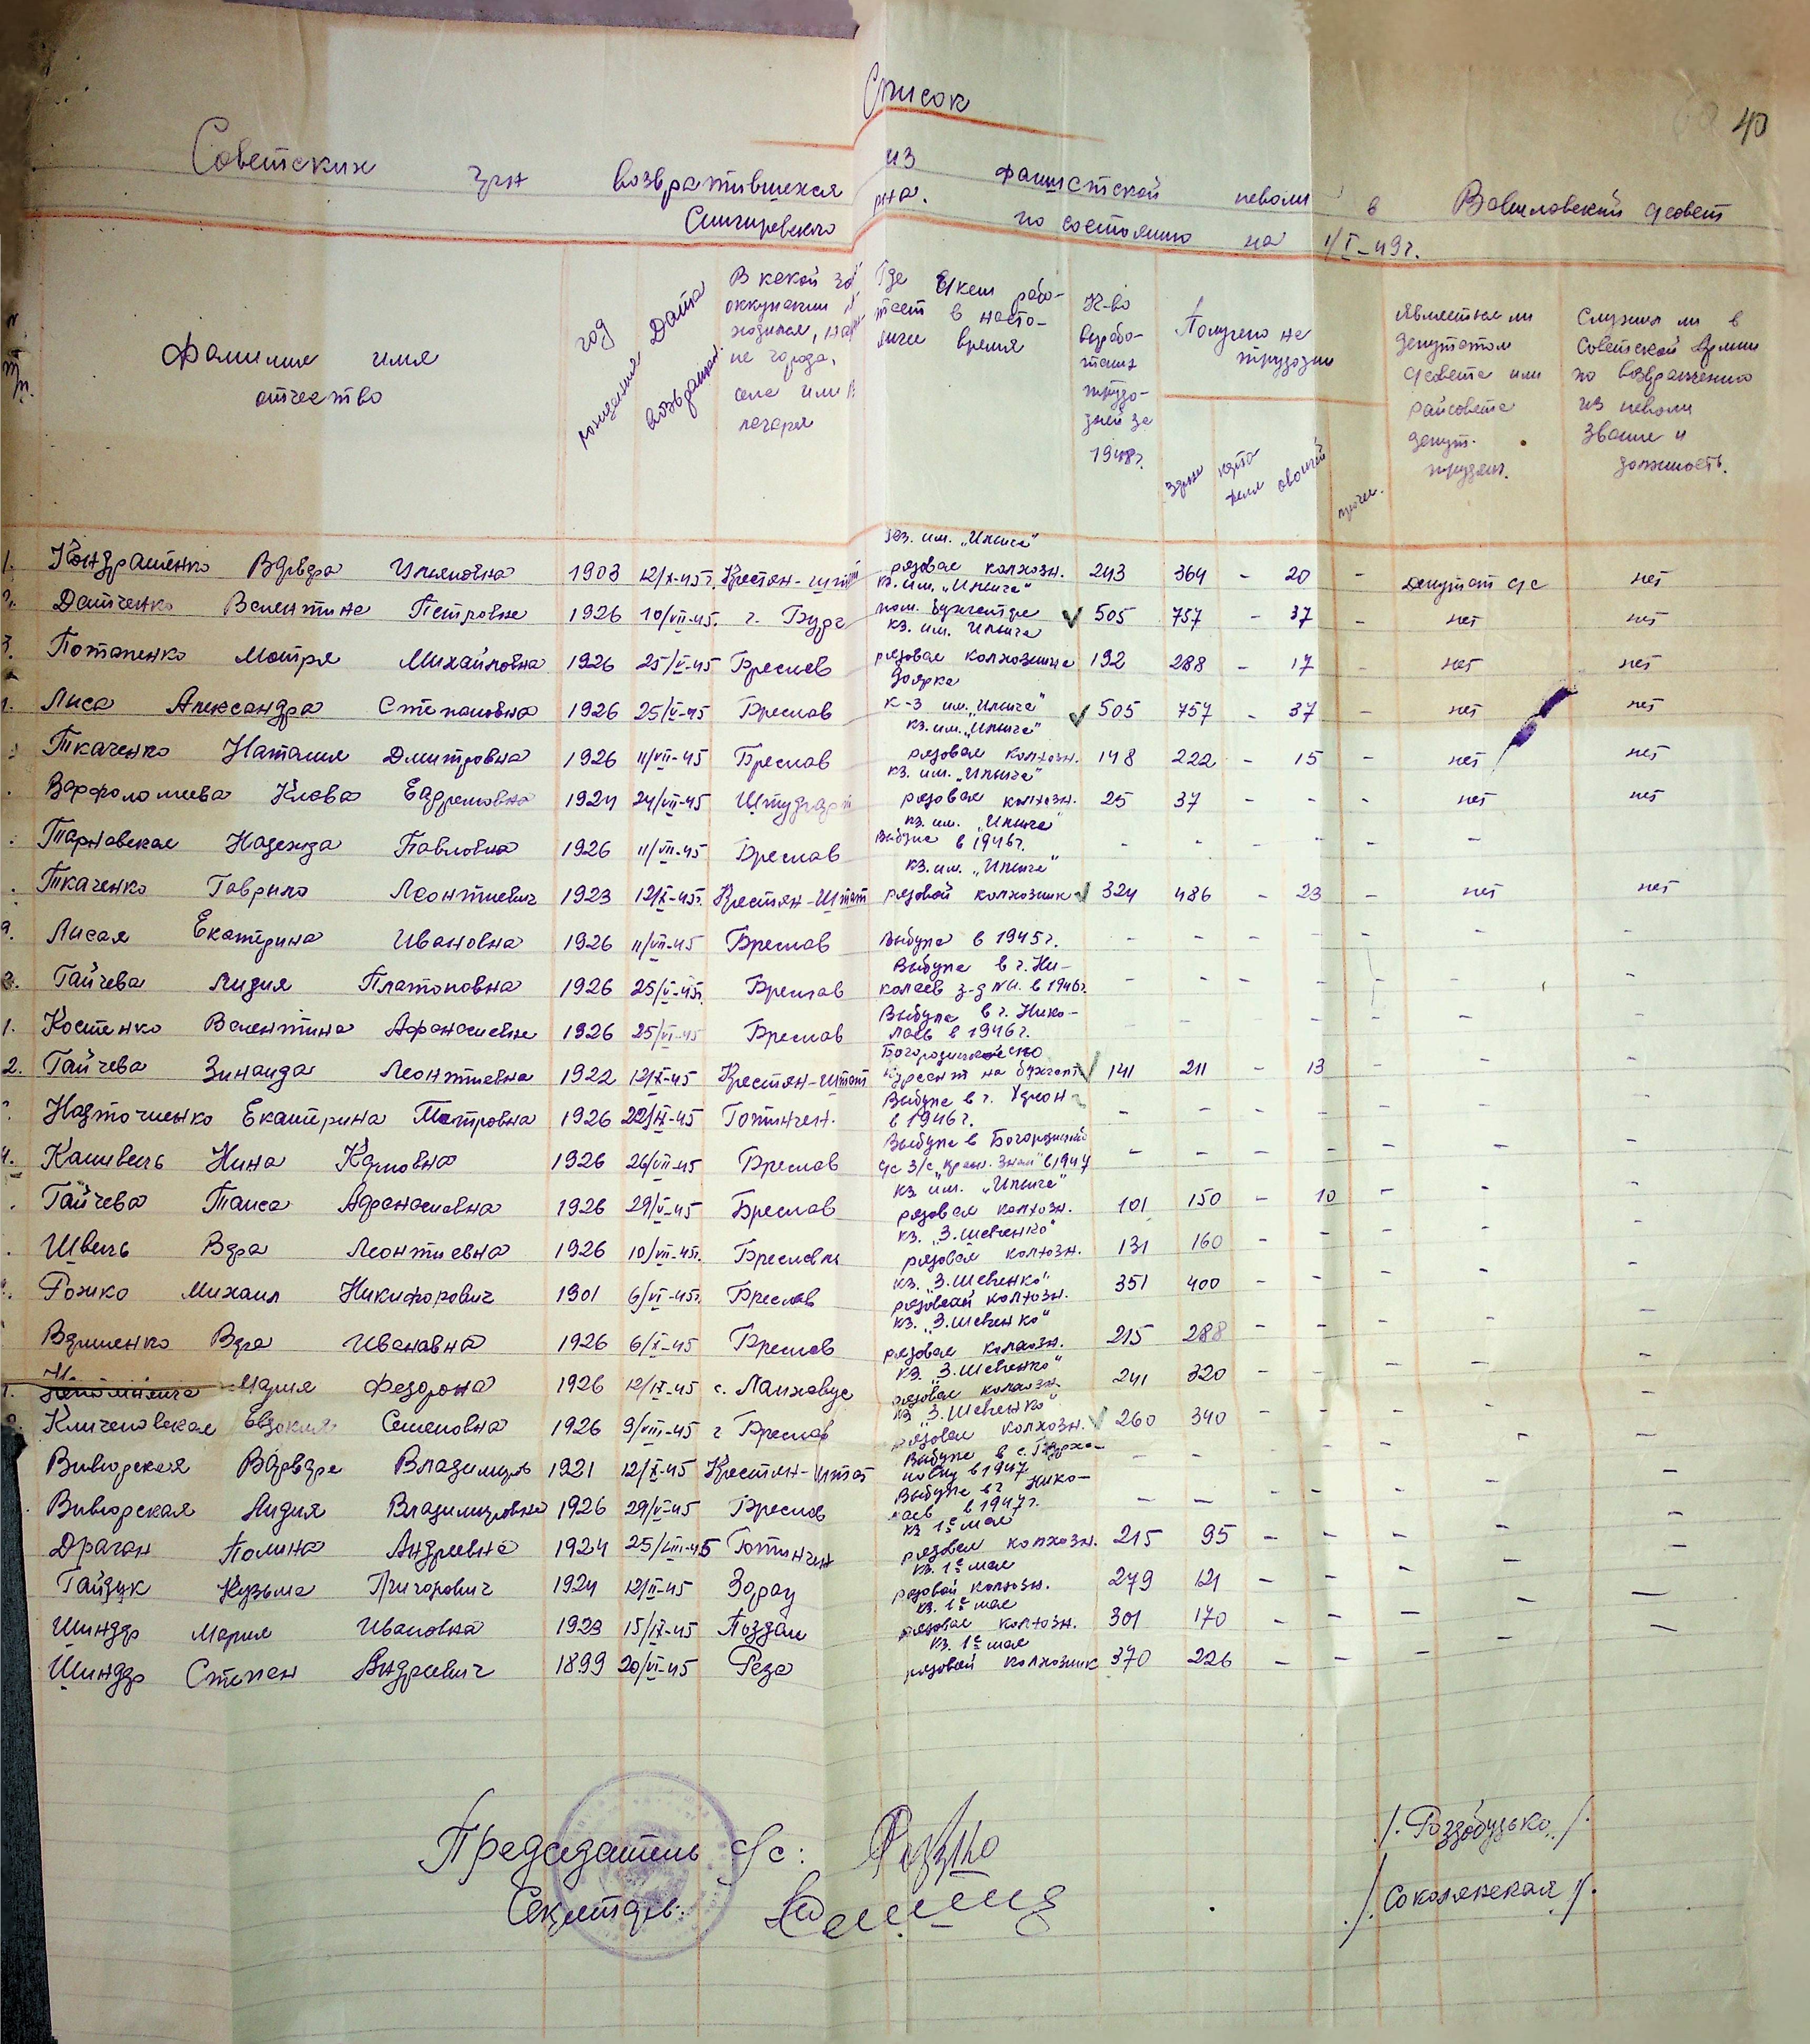 40
Список
Советских гр-н возвратившихся из фашистской неволи в Вавиловский с/совет
Снигиревского р-на. по состоянию на 1/I-49г.
Фамилия имя
отчество
год рождения
Дата возвращен.
В какой
оккупации
ходился,
не города,
села или
лагеря
Где и кем рабо-
тает в насто-
ящее время
К-во
вырабо-
таных
трудо-
дней за
1948г.
Получено на
трудодни
зерна
карто-
феля
овощей
прочих.
Является ли
депутатом
с/совета или
райсовета
депут.
трудящ.
Служил ли в
Советской Армии
по возвращению
из неволи
звание и
должность.
1. Кондратенко Варвара Ульяновна 1903 12/X-45г. Крестян-штат каз. им. „Ильича" рядовая колхозн. 243 364 - 20 - депутат с/с нет
2. Датченко Валентина Петровна 1926 10/VII-45. г. Бург кз. им. „Ильича" пом. бухгалтера 505 757 - 37 - нет нет
3. Потапенко Мотря Михайловна 1926 25/V-45 Бреслев кз. им. Ильича рядовая колхозница 192 288 - 17 - нет нет
Лиса Александра Степановна 1926 25/V-45 Бреслав доярка к-з им. „Ильича" 505 757 - 37 - нет нет
Ткаченко Наталия Дмитровна 1926 11/VII-45 Бреслав кз. им. „Ильича" рядовая колхозн. 148 222 - 15 - нет нет
Варфоломеева Клава Ефремовна 1924 24/VII-45 Штудгарт кз. им. „Ильича" рядовая колхозн. 25 37 - - - нет нет
Тарновская Надежда Павловна 1926 11/VII-45 Бреслав кз. им. „Ильича" выбула в 1946г. - - - - - -
Ткаченко Гаврило Леонтиевич 1923 12/X-45г. Крестян-Штат кз. им. „Ильича" рядовой колхозник 324 486 - 23 - нет нет
9. Лисая Екатерина Ивановна 1926 11/VII-45 Бреслав Выбула в 1945г. - - - - - - -
Гайчева Лидия Платоновна 1926 25/V-45г. Бреслав Выбула в г. Ни-
колаев з-д в 1946г. - - - - - -
1. Костенко Валентина Афанасиевна 1926 25/VI-45 Бреслав Выбула в г. Нико-
лаев в 1946г. - - - - - - -
2. Гайчева Зинаида Леонтиевна 1922 12/X-45 Крестян-штат 141 211 - 13 - - -
Надточиенко Екатерина Петровна 1926 22/IX-45 Готинген. Выбула в г.
в 1946г. - - - - - - -
4. Кашивець Нина Карповна 1926 26/VII-45 Бреслав Выбула в
с/с в 1947 - - - - - - -
Гайчева Таиса Афанасиевна 1926 29/V-45 Бреслав кз им. „Ильича" рядовая колхозн. 101 150 - 10 - - -
Швець Вера Леонтиевна 1926 10/VII-45г. Бреславль кз. „З. Шевченко" рядовая колхозн. 131 160 - - - - -
Рожко Михаил Никифорович 1901 6/VI-45г. Бреслав кз. „З. Шевченко" рядовой колхозн. 351 400 - - - - -
Вдовиенко Вера Ивановна 1926 6/X-45 Бреслав кз. „З. Шевченко" рядовая колхозн. 215 288 - - - - -
Мария Федорона 1926 12/IX-45 с. Ланховус кз „З. Шевченко" рядовая колхозн. 241 320 - - - - -
Кличановская Евдокия Семеновна 1926 9/VIII-45 г Бреслав кз „З. Шевченко" рядовая колхозн. 260 340 - - - - -
Вивюрская Варвара Владимиро 1921 12/X-45 Крестян-штат Выбула в с.
в 1947 - - - - - - -
Вивюрская Лидия Владимировна 1926 29/V-45 Бреслав Выбула в г Нико-
лаев в 1947г. - - - - - - -
Драган Полина Андреевна 1924 25/VIII-45 Готинген кз 1е мая рядовая колхозн. 215 95 - - - - -
Гайдук Кузьма Григорович 1924 12/II-45 Зорау кз. 1е мая рядовой колхозн. 279 121 - - - - -
Шиндер Мария Ивановна 1923 15/IX-45 Поздан кз. 1е мая рядовая колхозн. 301 170 - - - - -
Шиндер Степан Андреевич 1899 20/VI-45 Реза кз. 1е мая рядовой колхозник 370 226 - - - - -
Председатель с/с: /. Роздобудько. /.
Секретарь: /. Соколянская /.